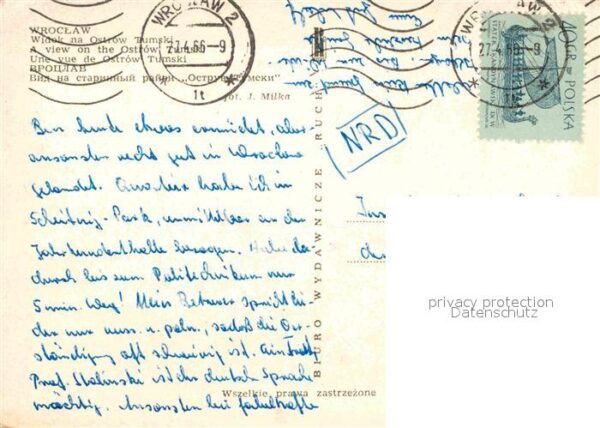 WROCŁAW
Widok na Ostrów Tumski
A view on the Ostrów Tumski
Une vue de Ostrów Tumski
ВРОЦЛАВ
Вид на старинный район „Острув Тумски"
fot. J. Milka
WROCŁAW 2
27.4.66-9
1t
WROCŁAW 2
27.4.66-9
1t
40 GR
POLSKA
NRD
Bin heute etwas ermüdet, aber
ansonsten recht gut in Wrocław
gelandet. Quartier habe ich im
Scheitnig-Park, unmittelbar an der
Jahrhunderthalle bezogen. Habe da-
durch bis zum Politechnikum nur
5 min. Weg! Mein Betreuer spricht lei-
der nur russ. u. poln., sodaß die Ver-
ständigung oft schwierig ist. Ein
Prof. Stalinski ist der deutsch Sprache
mächtig. Ansonsten bei fabelhafte
BIURO WYDAWNICZE „RUCH"
Wszelkie prawa zastrzeżone
privacy protection
Datenschutz